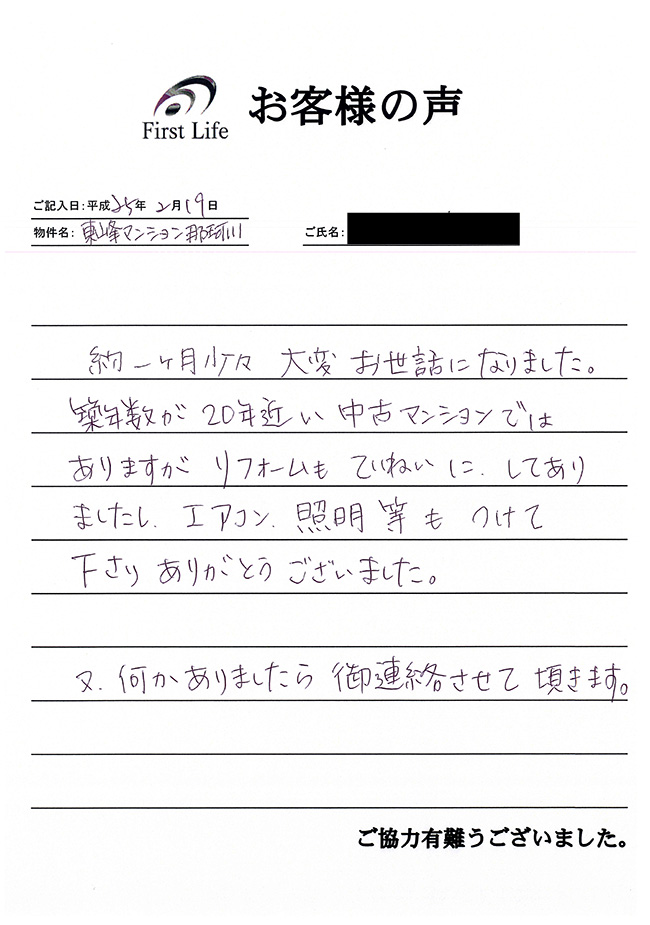 First Life
お客様の声
ご記入日：平成25年2月19日
物件名：東峰マンション那珂川
ご氏名：
約一ヶ月少々 大変 お世話になりました。
築年数が 20年近い 中古マンションでは
ありますが リフォームも ていねいに、してあり
ましたし、エアコン、照明 等も つけて
下さり ありがとう ございました。
又、何かありましたら 御連絡させて 頂きます。
ご協力有難うございました。